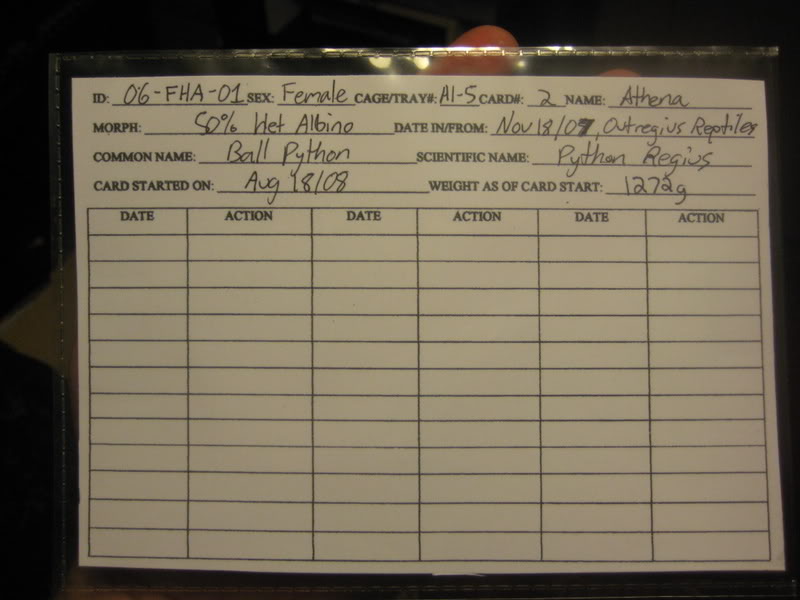 ID: 06-FHA-01 SEX: Female CAGE/TRAY#: A1-5 CARD#: 2 NAME: Athena
MORPH: 50% Het Albino DATE IN/FROM: Nov 18/07, Outregius Reptiles
COMMON NAME: Ball Python SCIENTIFIC NAME: Python Regius
CARD STARTED ON: Aug 18/08 WEIGHT AS OF CARD START: 1272g
DATE ACTION DATE ACTION DATE ACTION